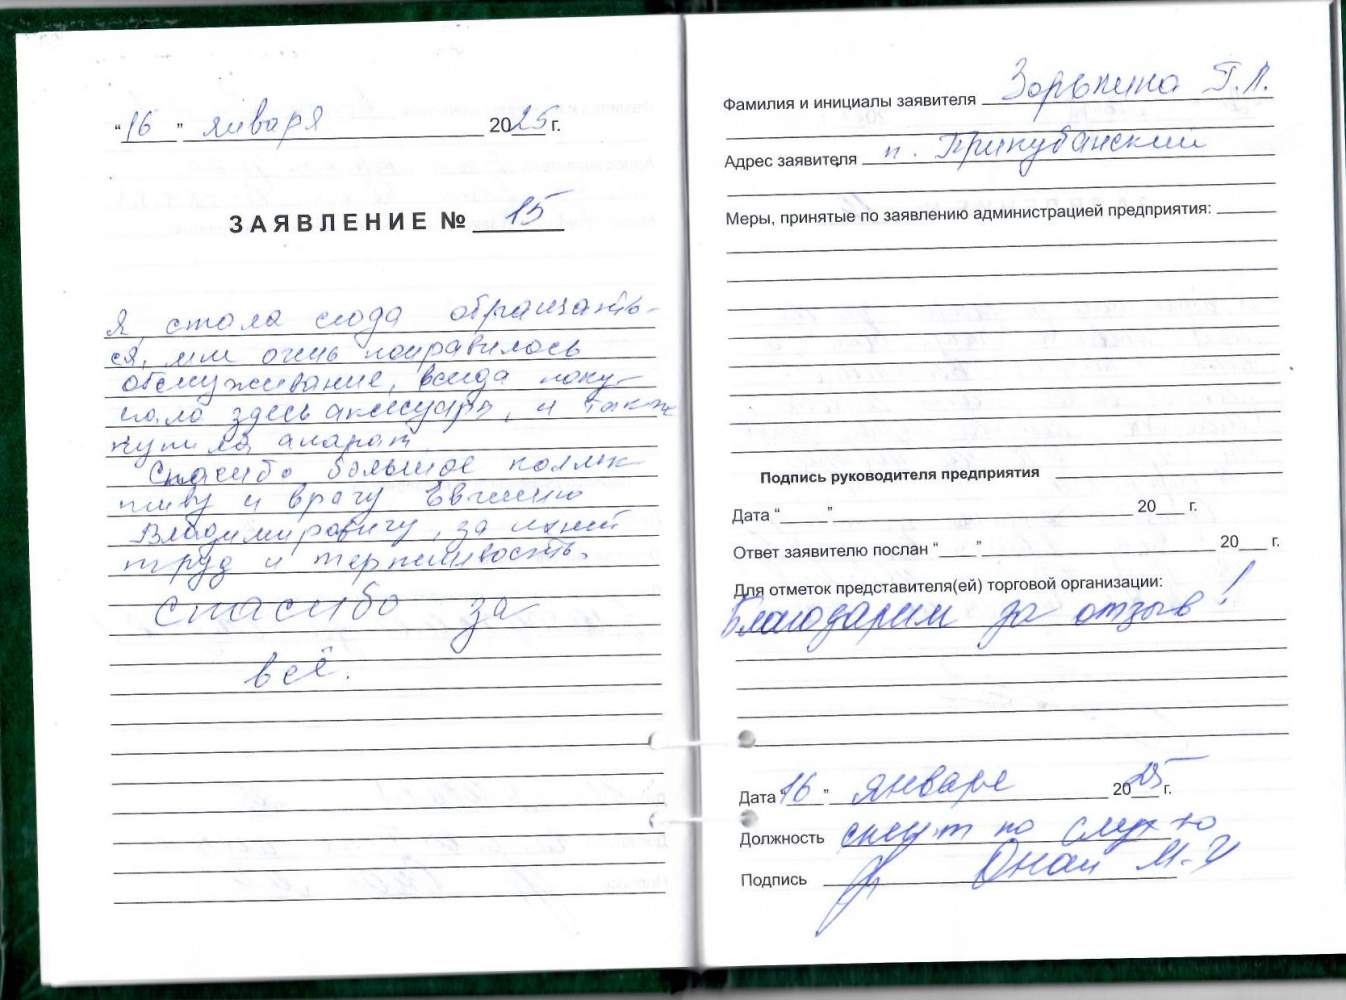 “16” января 2025 г.
ЗАЯВЛЕНИЕ № 15
Я стала сюда обращать-
ся, мне очень понравилось
обслуживание, всегда поку-
пала здесь аксесуары, и также
купила апарат
Спасибо большое коллек
тиву и врачу Евгению
Владимировичу, за их
труд и терпеливость.
спасибо за
всё.
Фамилия и инициалы заявителя Зорькина Г.П.
Адрес заявителя п. Прикубанский
Меры, принятые по заявлению администрацией предприятия:
Подпись руководителя предприятия
Дата “ ” 20 г.
Ответ заявителю послан “ ” 20 г.
Для отметок представителя(ей) торговой организации:
Благодарим за отзыв!
Дата “16” января 2025 г.
Должность по слуху
Подпись